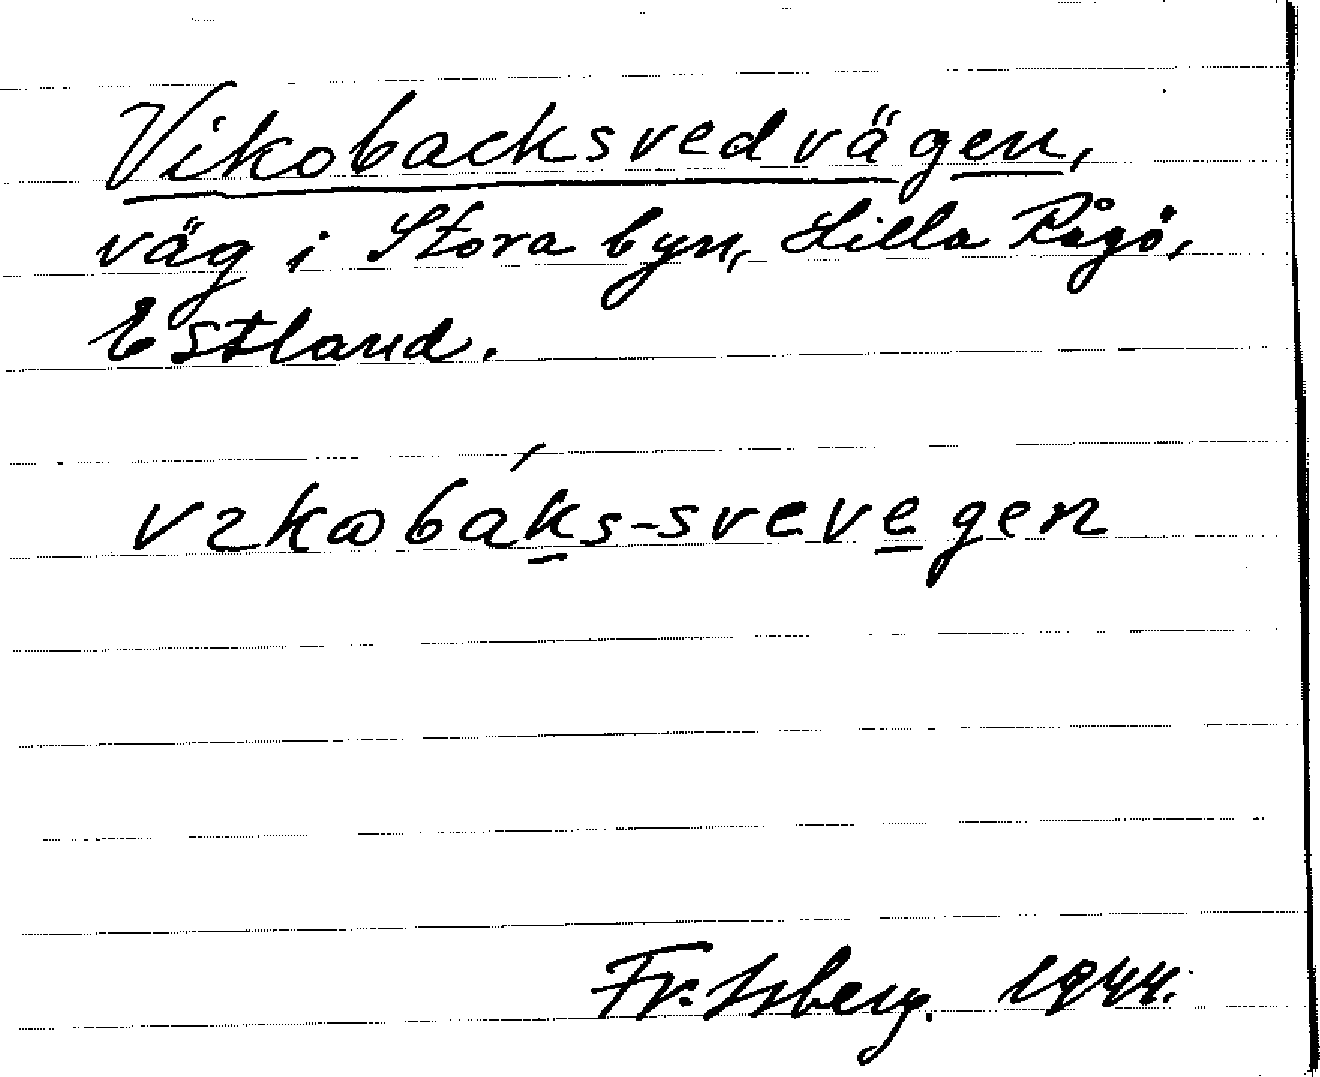 Vikobacksvedvägen,
väg i Stora byn, Lilla Rågö,
Estland.
vɩkωbáks-svevegen
Fr. Isberg. 1944.